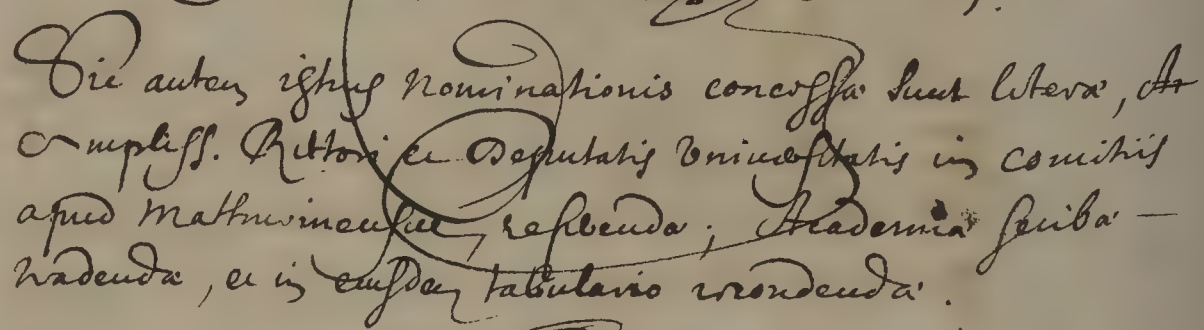 Sic autem istius Nominationis concessæ sunt literæ, At
Ampliss. Rectori et Deputatis Universitatis in comitiis
apud Mathurinenses, reſcribendæ ; Academiæ scribæ
tradendæ, et in ejusdem tabulario recondendæ.